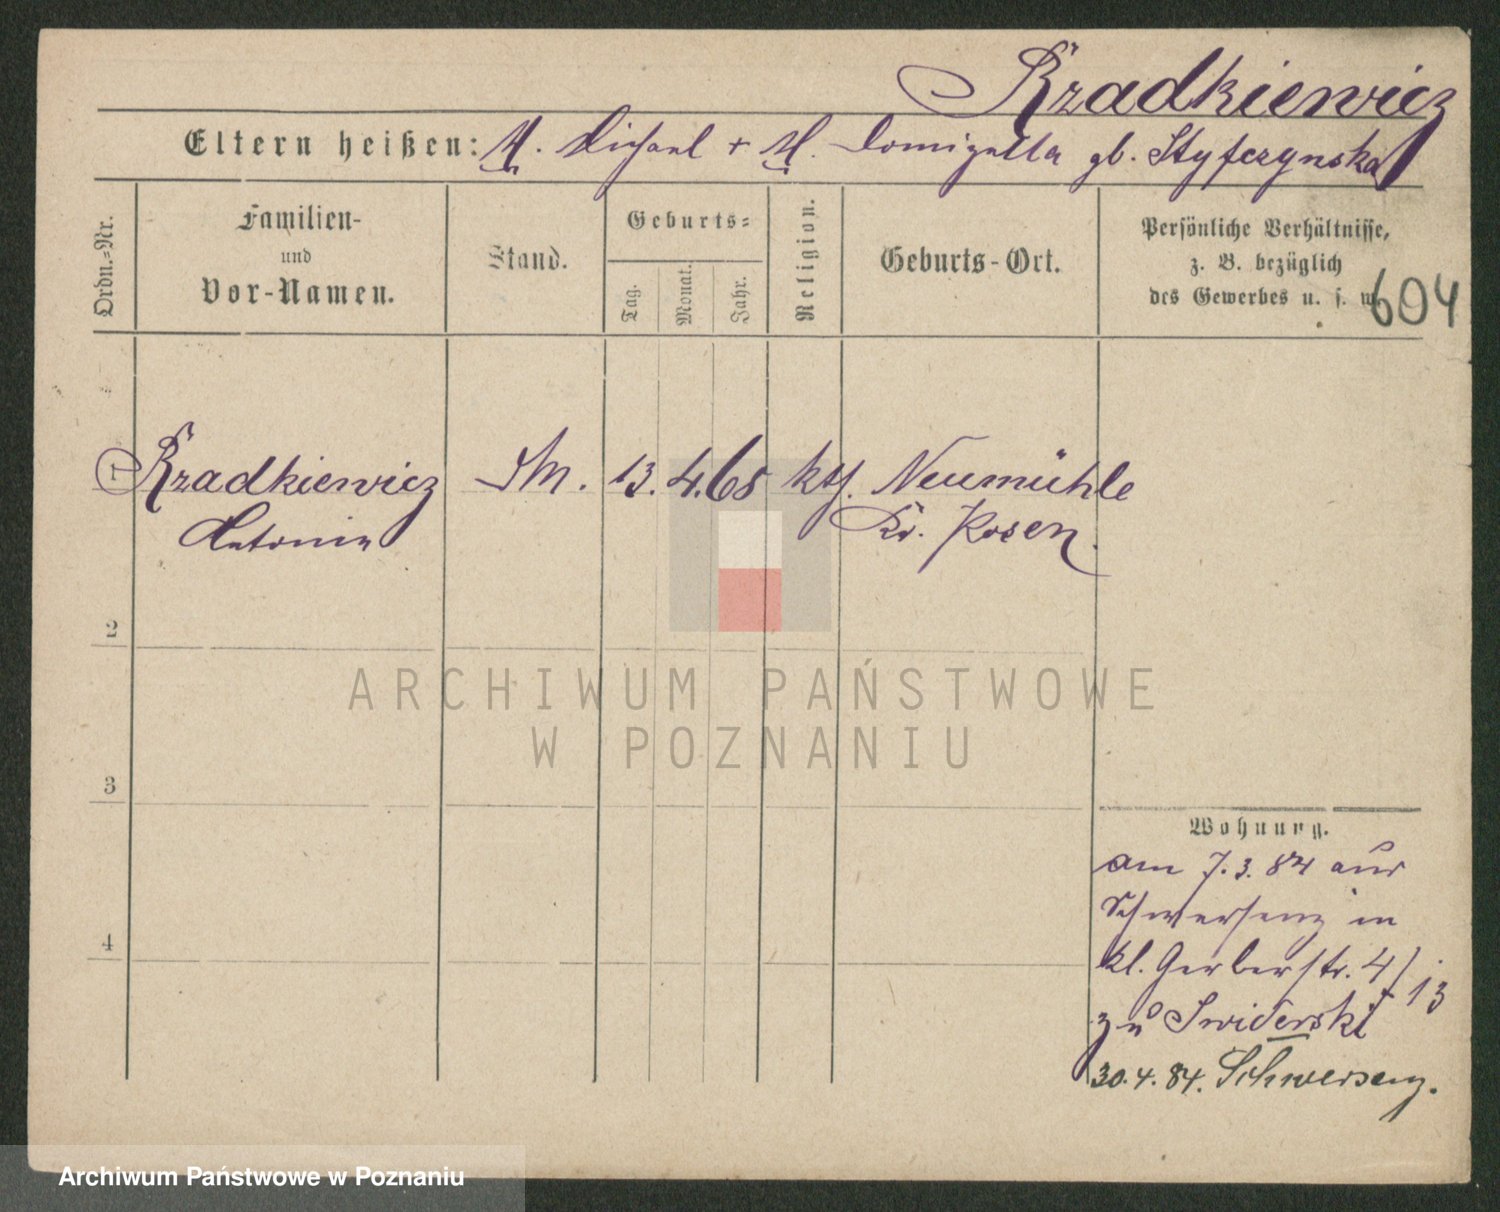 Rzadkiewicz
Eltern heißen: M. Michael + M. Domizella gb. Styfczynska
Ordn.-Nr.
Familien-
und
Vor-Namen.
Stand.
Geburts-
Tag.
Monat.
Jahr.
Religion.
Geburts-Ort.
Persönliche Verhältnisse,
z. B. bezüglich
des Gewerbes u. s. w.
604
1
Rzadkiewicz
Antonie
DM.
13.
4.
65
kth.
Neumühle
Kr. Posen.
2
3
4
Wohnung.
am 7.3.84 aus
Schwersenz in
kl. Gerberstr. 4/13
zu Swiderski
30.4.84. Schwersenz.
ARCHIWUM PAŃSTWOWE
W POZNANIU
Archiwum Państwowe w Poznaniu